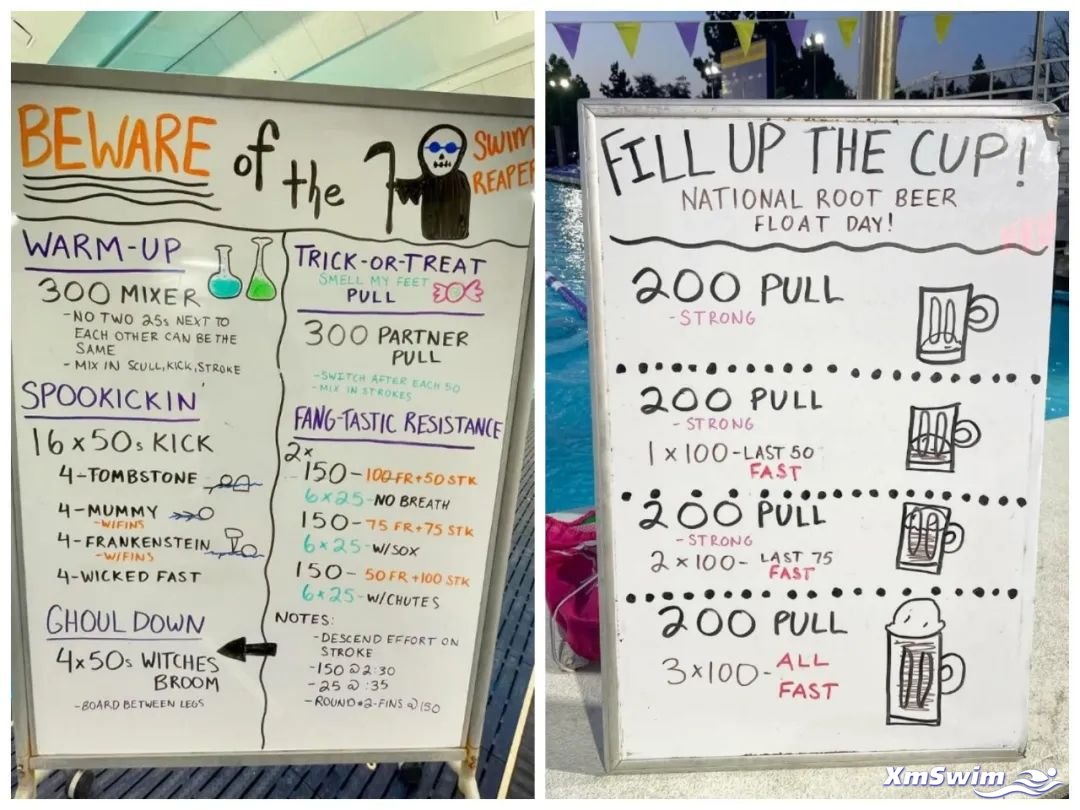 BEWARE of the SWIM
REAPER
WARM-UP
300 MIXER
-NO TWO 25s NEXT TO
EACH OTHER CAN BE THE
SAME
-MIX IN SCULL, KICK, STROKE
SPOOKICKIN'
16 x 50s KICK
4-TOMBSTONE
4-MUMMY
-W/FINS
4-FRANKENSTEIN
-W/FINS
4-WICKED FAST
GHOUL DOWN
4x50s WITCHES
BROOM
-BOARD BETWEEN LEGS
TRICK-OR-TREAT
SMELL MY FEET
PULL
300 PARTNER
PULL
-SWITCH AFTER EACH 50
-MIX IN STROKES
FANG-TASTIC RESISTANCE
2x
150-100 FR+50 STK
6x25-NO BREATH
150-75 FR+75 STK
6x25-W/SOX
150-50 FR+100 STK
6x25-W/CHUTES
NOTES:
-DESCEND EFFORT ON
STROKE
-150 @ 2:30
-25 @ :35
-ROUND #2-FINS @ 150
FILL UP THE CUP!
NATIONAL ROOT BEER
FLOAT DAY!
200 PULL
-STRONG
200 PULL
-STRONG
1x100-LAST 50
FAST
200 PULL
-STRONG
2x100-LAST 75
FAST
200 PULL
3x100-ALL
FAST
XmSwim